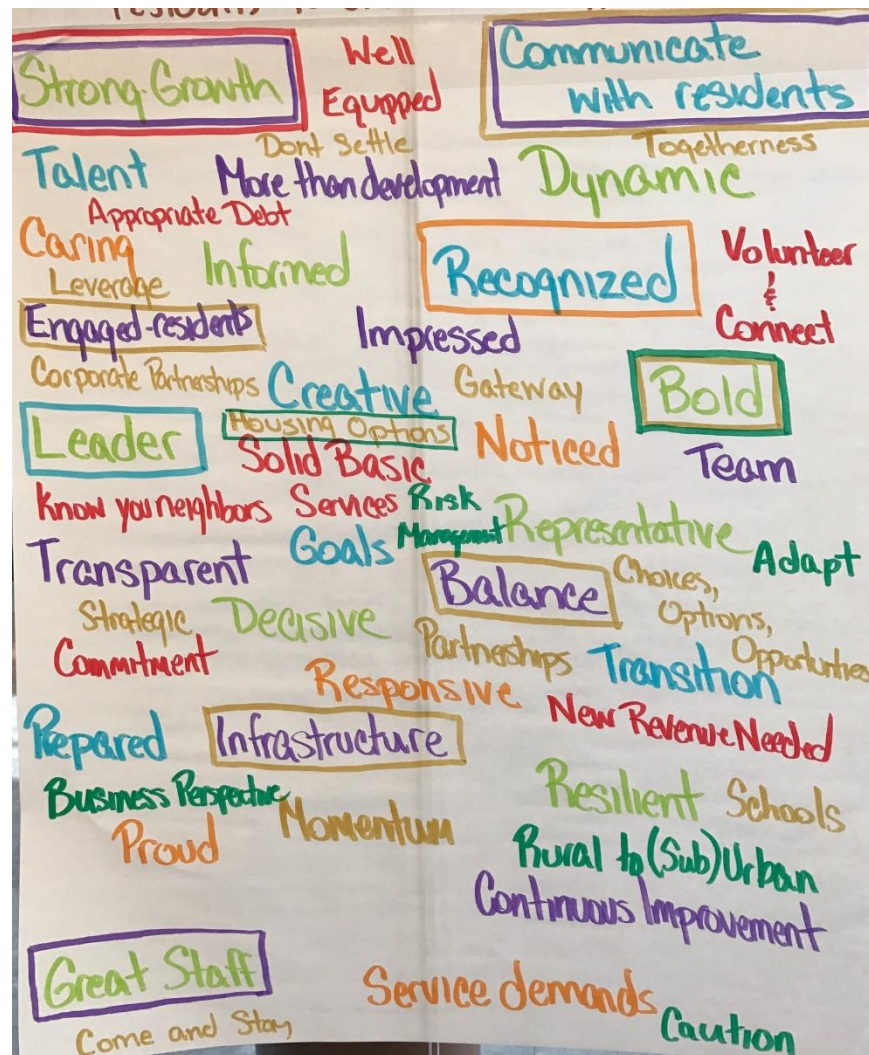 residents
Strong Growth
Well
Equipped
Communicate
with residents
Dont Settle
Togetherness
Talent
More than development
Dynamic
Appropriate Debt
Caring
Informed
Recognized
Volunteer
&
Connect
Leverage
Engaged-residents
Impressed
Corporate Partnerships
Creative
Gateway
Bold
Leader
Housing Options
Noticed
Team
Solid Basic
Services
Know you neighbors
Risk
Management
Representative
Adapt
Goals
Transparent
Balance
Choices,
Options,
Opportunities
Strategic
Decisive
Partnerships
Transition
Commitment
Responsive
New Revenue Needed
Prepared
Infrastructure
Business Perspective
Momentum
Resilient
Schools
Proud
Rural to (Sub)Urban
Continuous Improvement
Great Staff
Service demands
Come and Stay
Caution